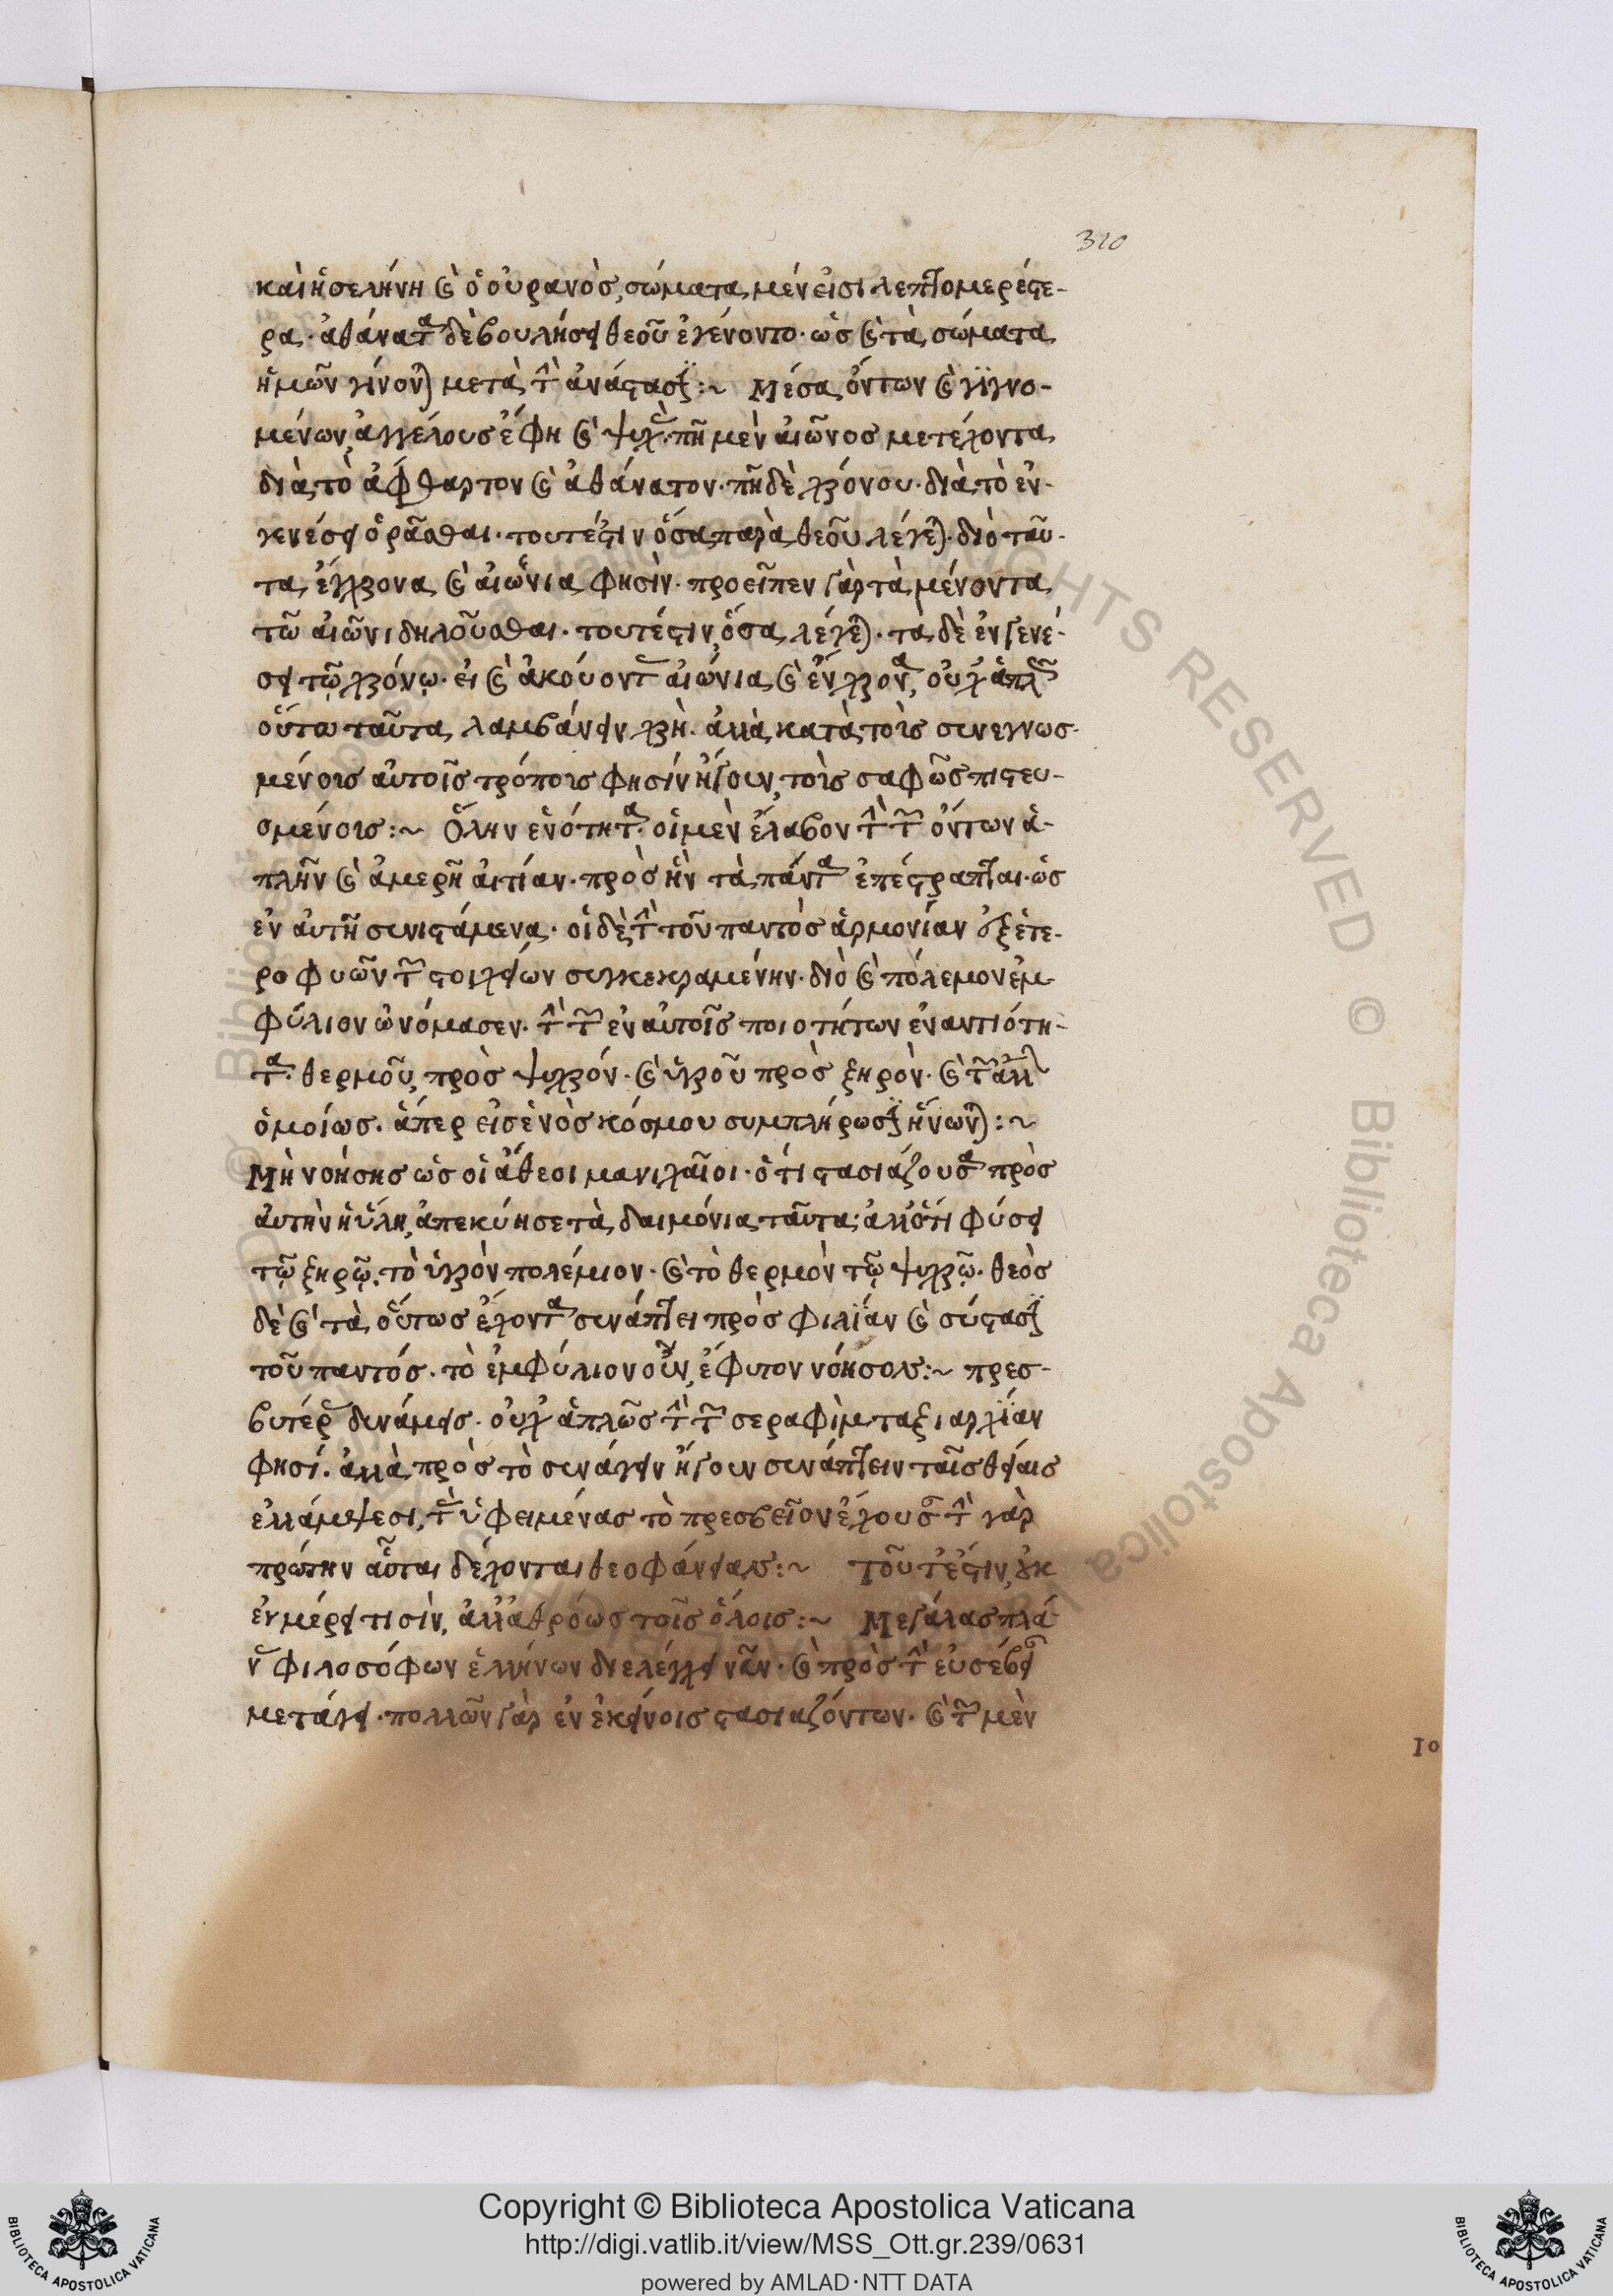 310
καὶ ἡ σελήνη καὶ ὁ οὐρανὸς, σώματα μέν εἰσι λεπτομερέστε-
ρα· ἀθάνατα δὲ βουλήσει θεοῦ ἐγένοντο· ὡς καὶ τὰ σώματα
ἡμῶν γίνονται μετὰ τὴν ἀνάστασιν :~ Μέσα ὄντων καὶ γϊγνο-
μένων, ἀγγέλους ἔφη καὶ ψυχὰς· πῆ μὲν αἰῶνος μετέχοντα
διὰ τὸ ἄφθαρτον καὶ ἀθάνατον· πῆ δὲ χρόνου· διὰ τὸ ἐν
γενέσει ὁρᾶσθαι· τουτέστιν ὅσα παρὰ θεοῦ λέγεται· διὸ ταῦ-
τα ἔγχρονα καὶ αἰώνια φησὶν· προεῖπεν γὰρ τὰ μένοντα
τῶ αἰῶνι δηλοῦσθαι· τουτέστιν, ὅσα λέγεται· τα δὲ ἐν γενέ-
σει τῷ χρόνῳ· εἰ καὶ ἀκούονται αἰώνια καὶ ἔνχρονα, οὐχ ἁπλῶς
οὕτω ταῦτα λαμβάνειν χρὴ· ἀλλὰ κατὰ τοῖς συνεγνωσ-
μένοις αὐτοῖς τρόποις φησὶν ἤγουν, τοῖς σαφῶς πιστευ-
σμένοις :~ Ὅλην ἑνότητα· οἱ μὲν ἔλαβον τὴν τῶν ὄντων ἁ-
πλῆν καὶ ἀμερῆ αἰτίαν· πρὸς ἣν τὰ πάντα ἐπέστραπται· ὡς
ἐν αὐτῆ συνιστάμενα· οἱ δὲ τὴν τοῦ παντὸς ἁρμονίαν ἐξ ἑτε-
ροφυῶν τῶν στοιχείων συγκεκραμένην· διὸ καὶ πόλεμον ἐμ
φύλιον ὠνόμασεν· τὴν τῶν ἐν αὐτοῖς ποιοτήτων ἐναντιότη-
τα· θερμοῦ πρὸς ψυχρόν· καὶ ὑγροῦ πρὸς ξηρὸν· καὶ τῶν ἄλλων
ὁμοίως· ἅπερ εἰς ἑνὸς κόσμου συμπλήρωσιν ἥνωνται :~
Μὴ νοήσῃς ὡς οἱ ἄθεοι μανιχαῖοι· ὅτι στασιάζουσα πρὸς
αὐτὴν ἡ ὕλη, ἀπεκύησε τὰ δαιμόνια ταῦτα; ἀλλ' ὅτι φύσει
τῷ ξηρῷ, τὸ ὑγρὸν πολέμιον· καὶ τὸ θερμὸν τῷ ψυχρῷ· θεὸς
δὲ καὶ τὰ οὕτως ἔχοντα συνάπτει πρὸς φιλϊαν καὶ σύστασιν
τοῦ παντός· τὸ ἐμφύλιον οὖν, ἔφυτον νόησον :~ πρεσ-
βυτέρας δυνάμεις· οὐχ ἁπλῶς τὴν τῶν σεραφὶμ ταξιαρχίαν
φησί· ἀλλὰ πρὸς τὸ συνάγειν ἤγουν συνάπτειν ταῖς θείαις
ἐλλάμψεσι, τὰς ὑφειμένας τὸ πρεσβεῖον ἐχούσας τὴν γὰρ
πρώτην αὗται δέχονται θεοφάνειαν :~ Τοῦτέστιν, οὐκ
ἐν μέρει τισὶν, ἀλλ' ἀθρόως τοῖς ὅλοις :~ Μεγάλας πλά-
νας φιλοσόφων ἑλλήνων διελέγχει νῦν· καὶ πρὸς τὴν εὐσέβειαν
μετάγει· πολλῶν γὰρ ἐν ἐκείνοις στασιαζόντων· καὶ τῶν μὲν
10
Copyright © Biblioteca Apostolica Vaticana
http://digi.vatlib.it/view/MSS_Ott.gr.239/0631
powered by AMLAD·NTT DATA
BIBLIOTECA APOSTOLICA VATICANA
BIBLIOTECA APOSTOLICA VATICANA